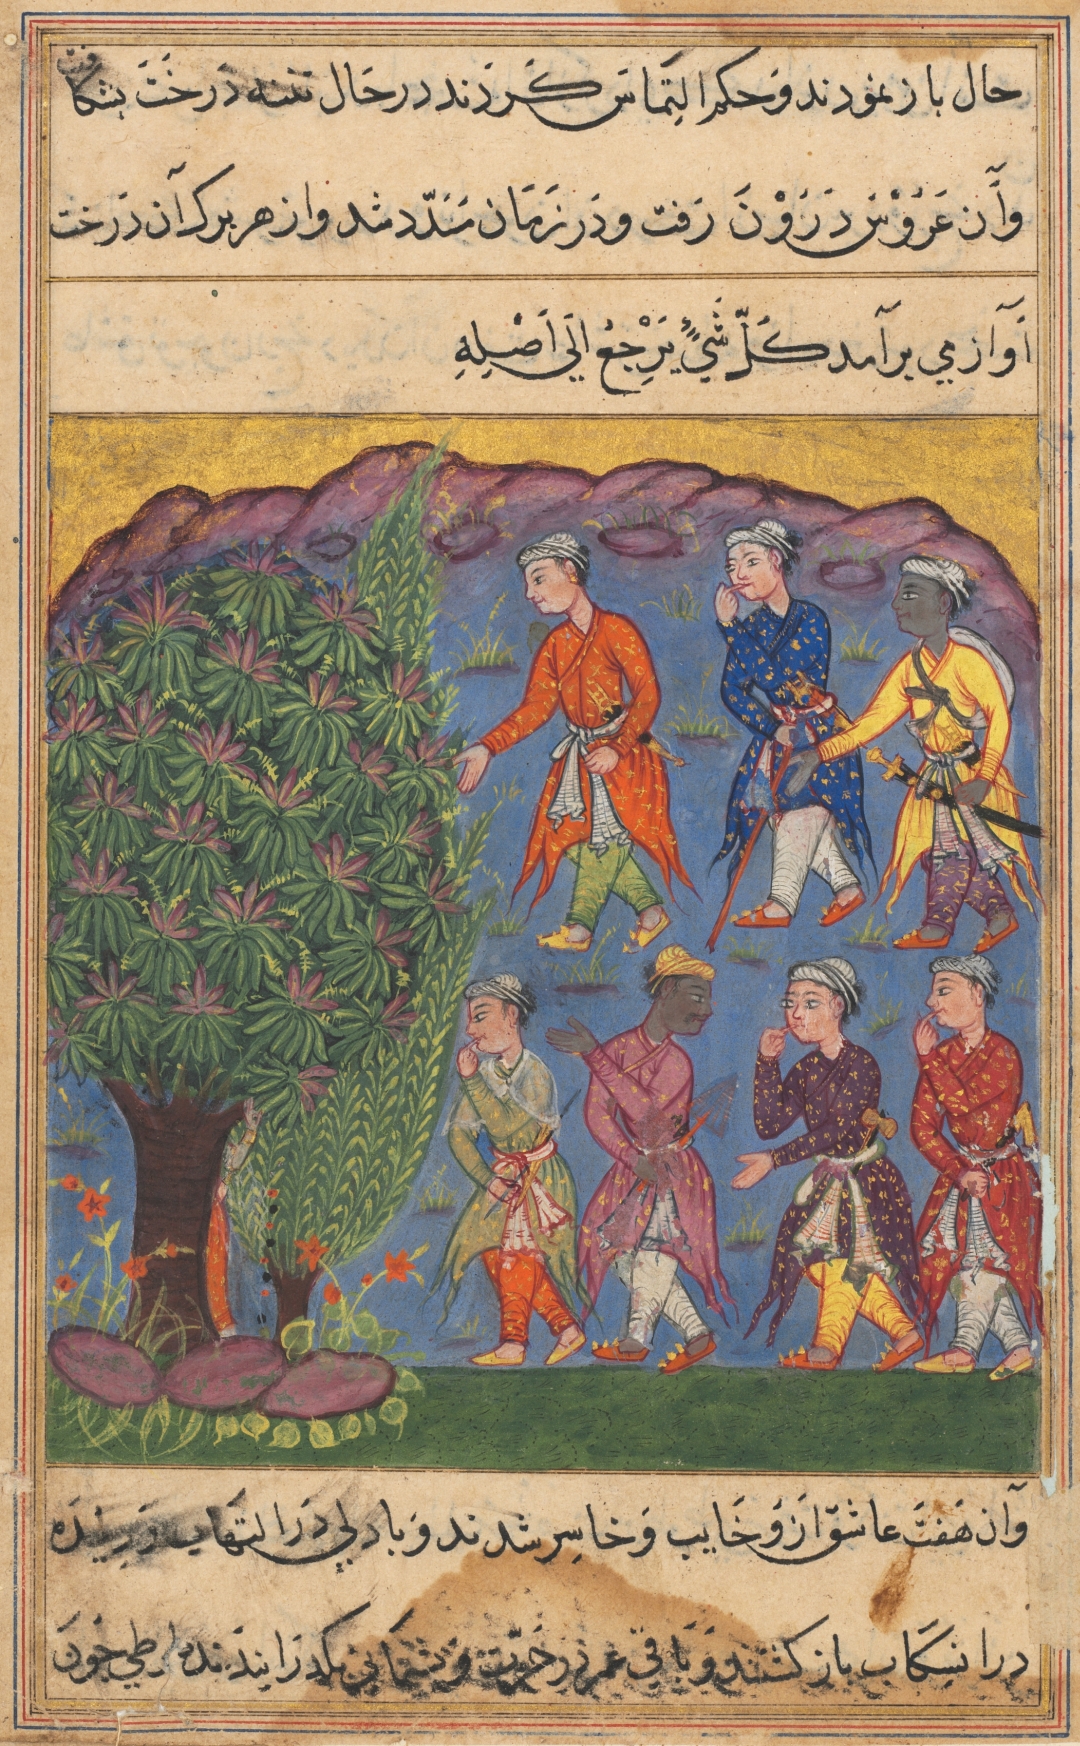 حال باز نمودند وَ حکم التَماسَ کَردَند در حال تنه دَرخَتَ بشکافت
وآن عَرُوْسَ دَرُوْنَ رَفت ودَر زَمَان مَسَدّد شد واز هر برک آن دَرخت
آواز می برآمد کُلّ شَيْءٍ يَرْجِعُ الَي اَصْلِهِ
وآن هَفتَ عاشق ازو خَایب وَ خاسِر شدند وَ با دلي دَر التهاب وَ دِیدَه
در انسکاب باز کشتند وَ بَاقي عمر در حَسرَت وَ پَشیمَاني بگذرَانیدَند طي خون